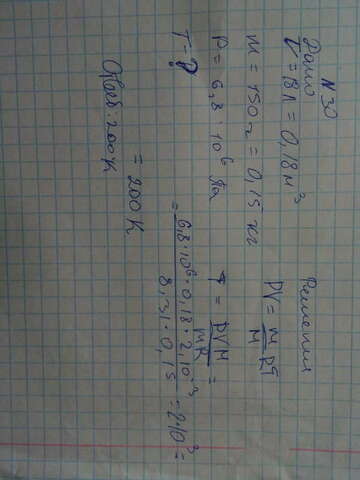 N 30
Дано
V = 18 л = 0,18 м³
m = 150 г = 0,15 кг
P = 6,8 · 10⁶ Па
T - ?
Решение
PV = m/M RT
T = PVM/mR =
= 6,8·10⁶·0,18·2·10⁻³/8,31·0,15 = 2·10³ =
= 200 К
Ответ: 200 К